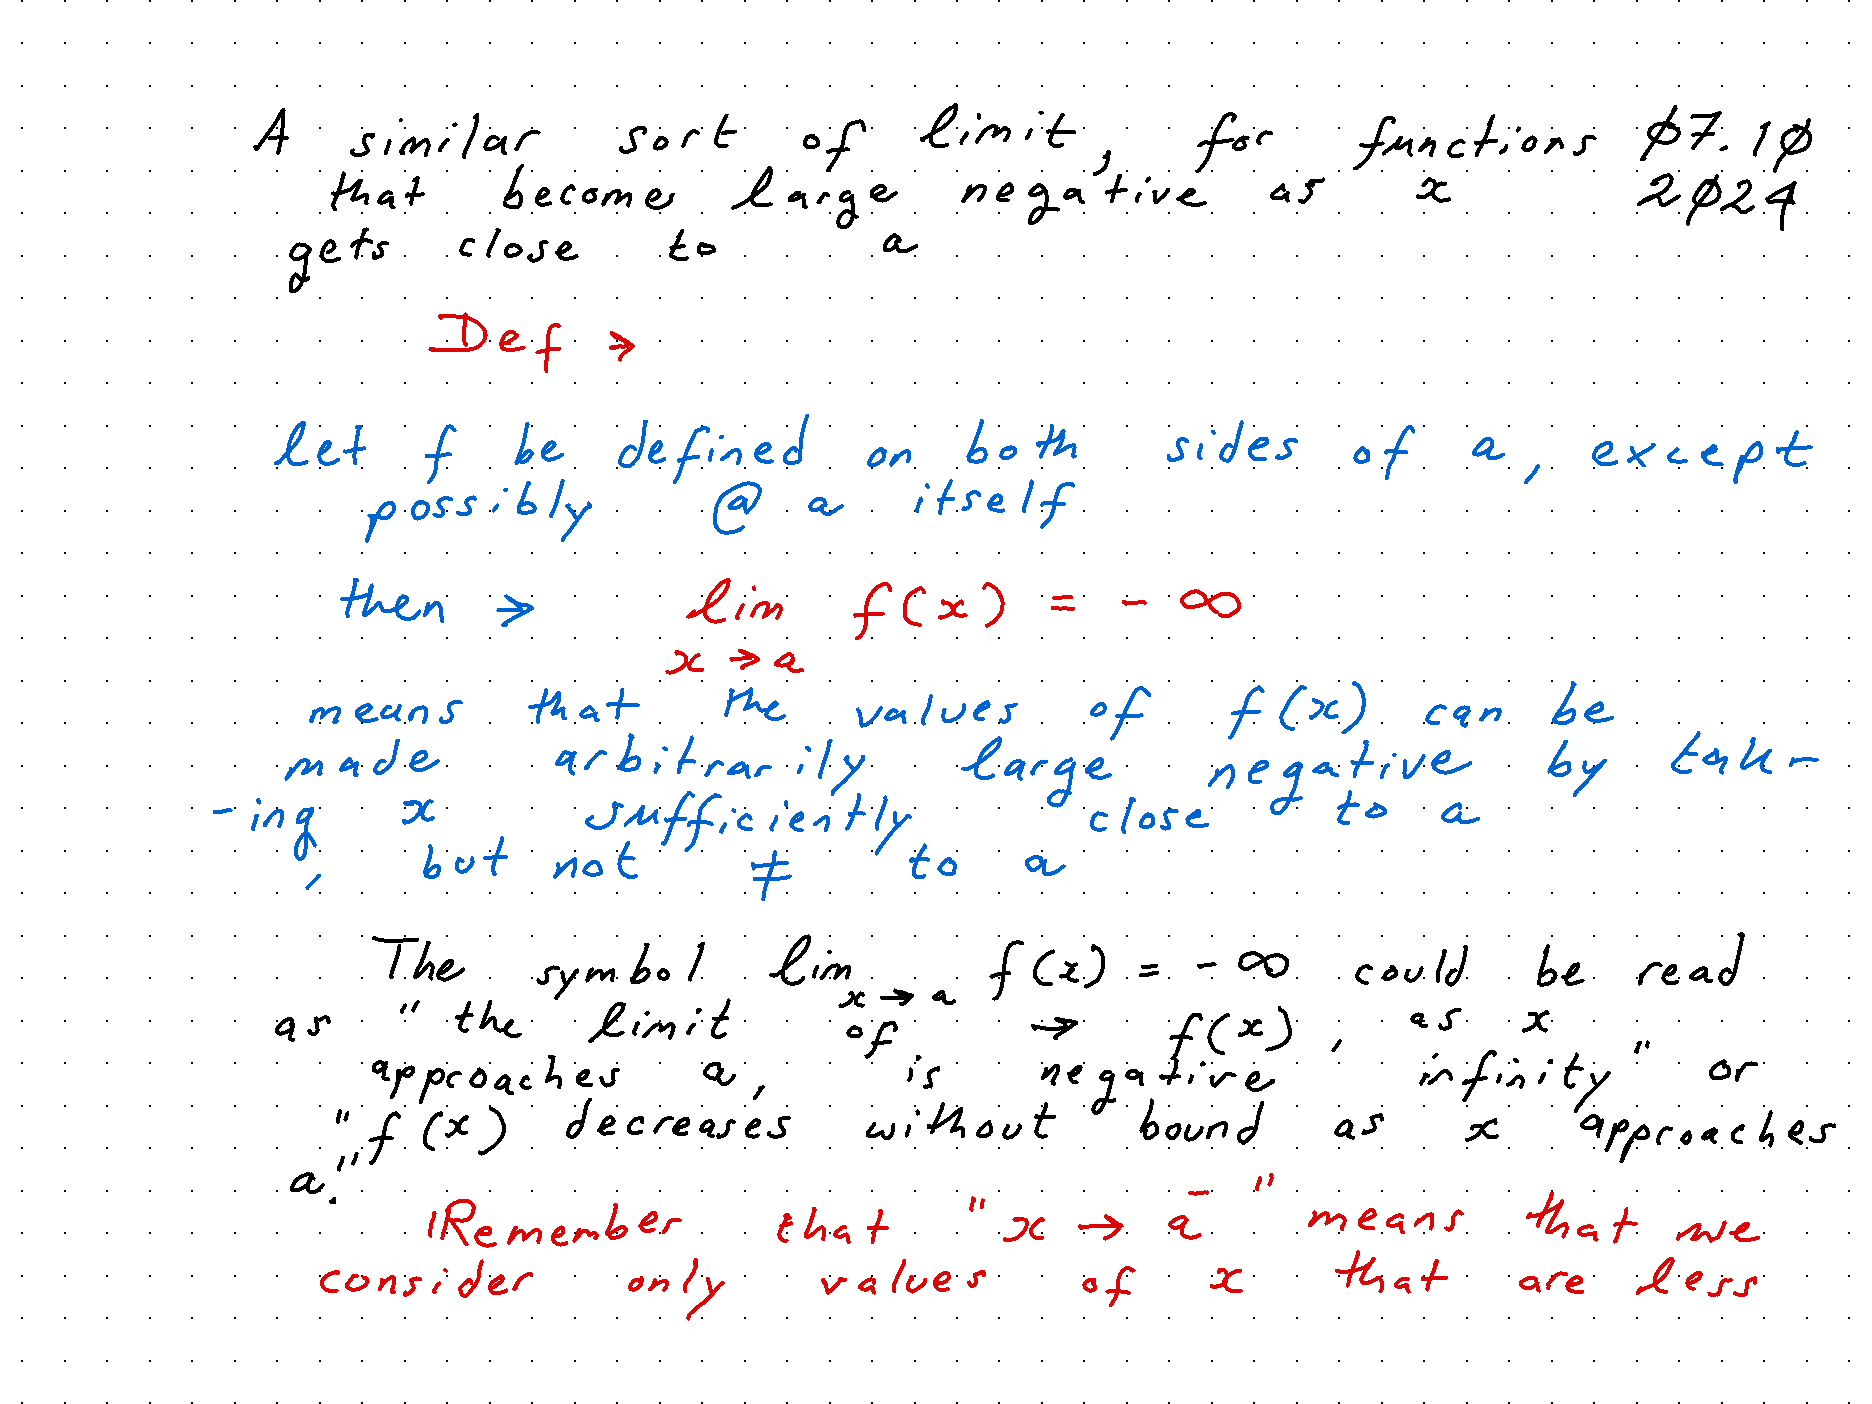 A similar sort of limit, for functions 07.10
that become large negative as x 2024
gets close to a
Def →
let f be defined on both sides of a, except
possibly @ a itself
then → lim f(x) = - ∞
x → a
means that the values of f(x) can be
made arbitrarily large negative by tak-
-ing x sufficiently close to a
, but not ≠ to a
The symbol lim x → a f(x) = - ∞ could be read
as "the limit of → f(x), as x
approaches a, is negative infinity" or
"f(x) decreases without bound as x approaches
a."
Remember that "x → a⁻" means that we
consider only values of x that are less